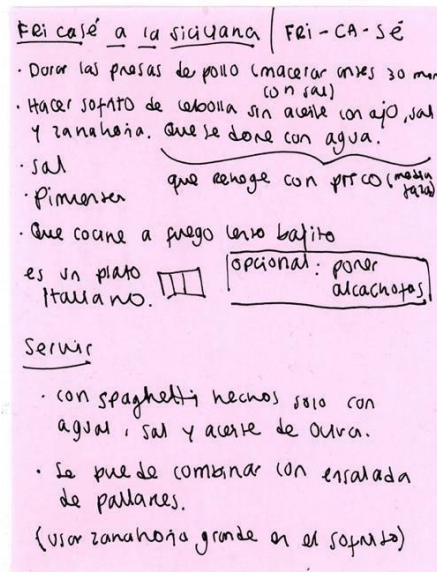 Fricasé a la siciliana | FRI-CA-SÉ
· Dorar las presas de pollo (macerar antes 30 min con sal)
· Hacer sofrito de cebolla sin aceite con ajo, sal
y zanahoria. Que se dore con agua.
· sal
que rehoge con pisco (media taza)
· Pimienta
· Que cocine a fuego lento bajito
es un plato
Italiano.
opcional: poner
alcachofas
Servir
· con spaghetti hechos solo con
agua, sal y aceite de oliva.
· Se puede combinar con ensalada
de pallares.
(usar zanahoria grande en el sofrito)